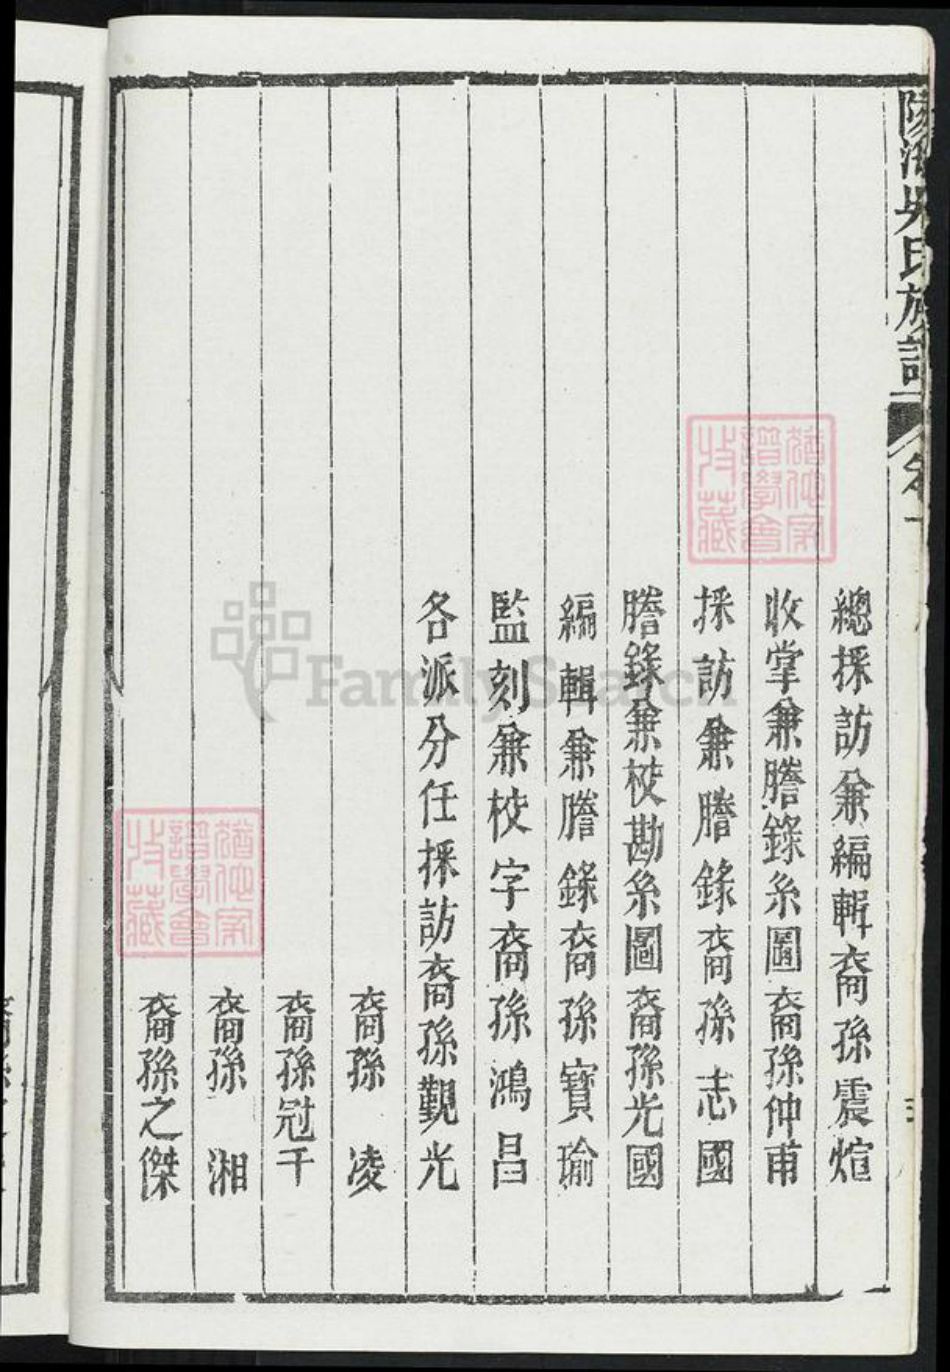 吳氏族譜
卷一
總採訪兼編輯裔孫震煊
收掌兼謄錄系圖裔孫仲甫
採訪兼謄錄裔孫志國
謄錄兼校勘系圖裔孫光國
編輯兼謄錄裔孫寶瑜
監刻兼校字裔孫鴻昌
各派分任採訪裔孫觀光
裔孫凌
裔孫冠千
裔孫湘
裔孫之傑
FamilySearch